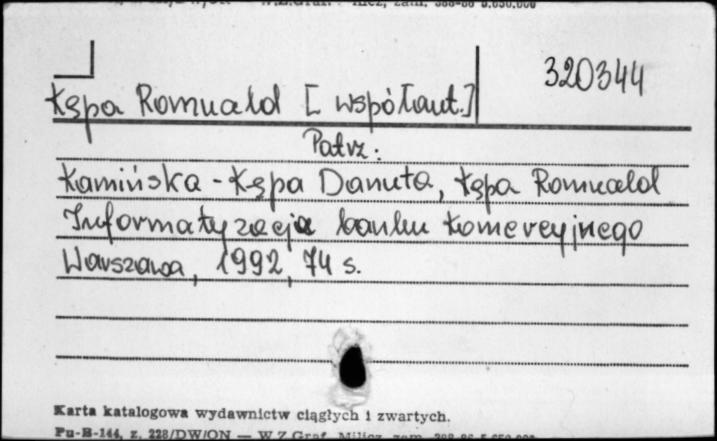 320344
Kępa Romuald [współaut.]
Patrz:
Kamińska-Kępa Danuta, Kępa Romuald
Informatyzacja banku komercyjnego
Warszawa, 1992, 74 s.
Karta katalogowa wydawnictw ciągłych i zwartych.
Pu-B-144, z. 228/DW/ON — W.Z.Graf. Milicz, zam.